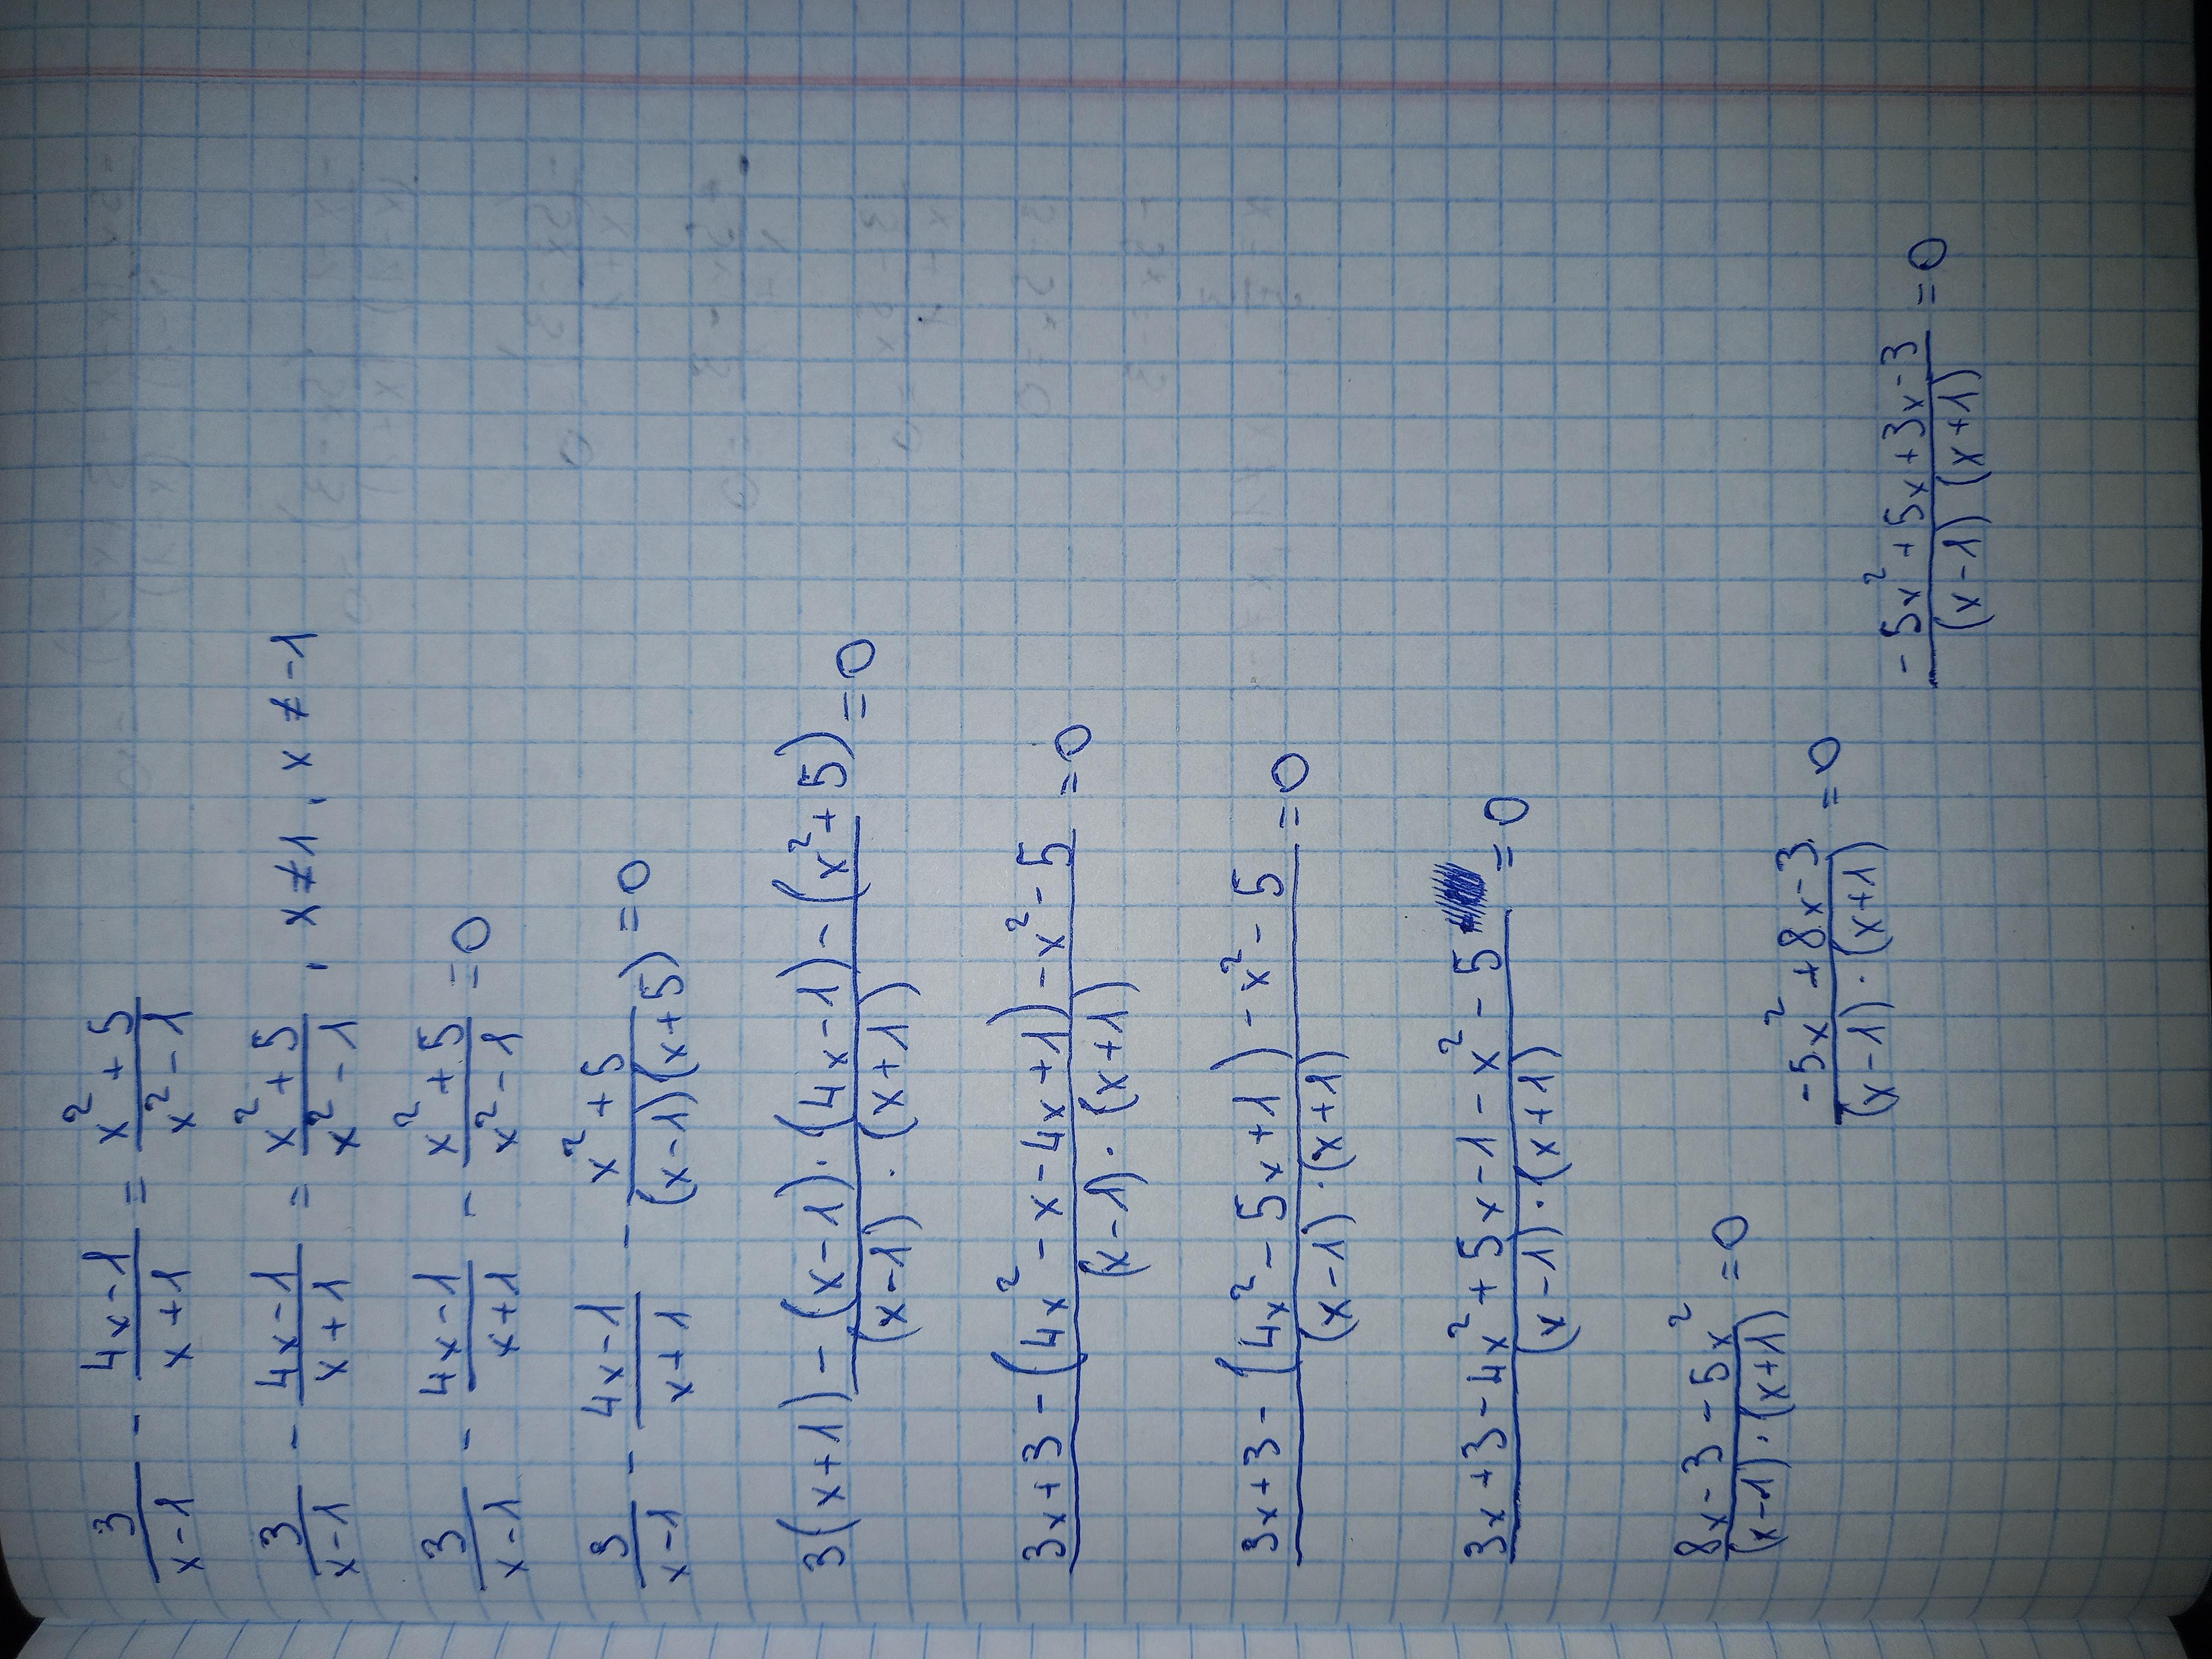 3/(x-1) - (4x-1)/(x+1) = (x²+5)/(x²-1)
3/(x-1) - (4x-1)/(x+1) = (x²+5)/(x²-1) , x≠1, x≠-1
3/(x-1) - (4x-1)/(x+1) - (x²+5)/(x²-1) =0
3/(x-1) - (4x-1)/(x+1) - (x²+5)/((x-1)(x+5)) =0
(3(x+1)-(x-1)·(4x-1)-(x²+5))/((x-1)·(x+1)) =0
(3x+3-(4x²-x-4x+1)-x²-5)/((x-1)·(x+1)) =0
(3x+3-(4x²-5x+1)-x²-5)/((x-1)·(x+1)) =0
(3x+3-4x²+5x-1-x²-5)/((x-1)·(x+1)) =0
(8x-3-5x²)/((x-1)·(x+1)) =0
(-5x²+8x-3)/((x-1)·(x+1)) =0
(-5x²+5x+3x-3)/((x-1)(x+1)) =0